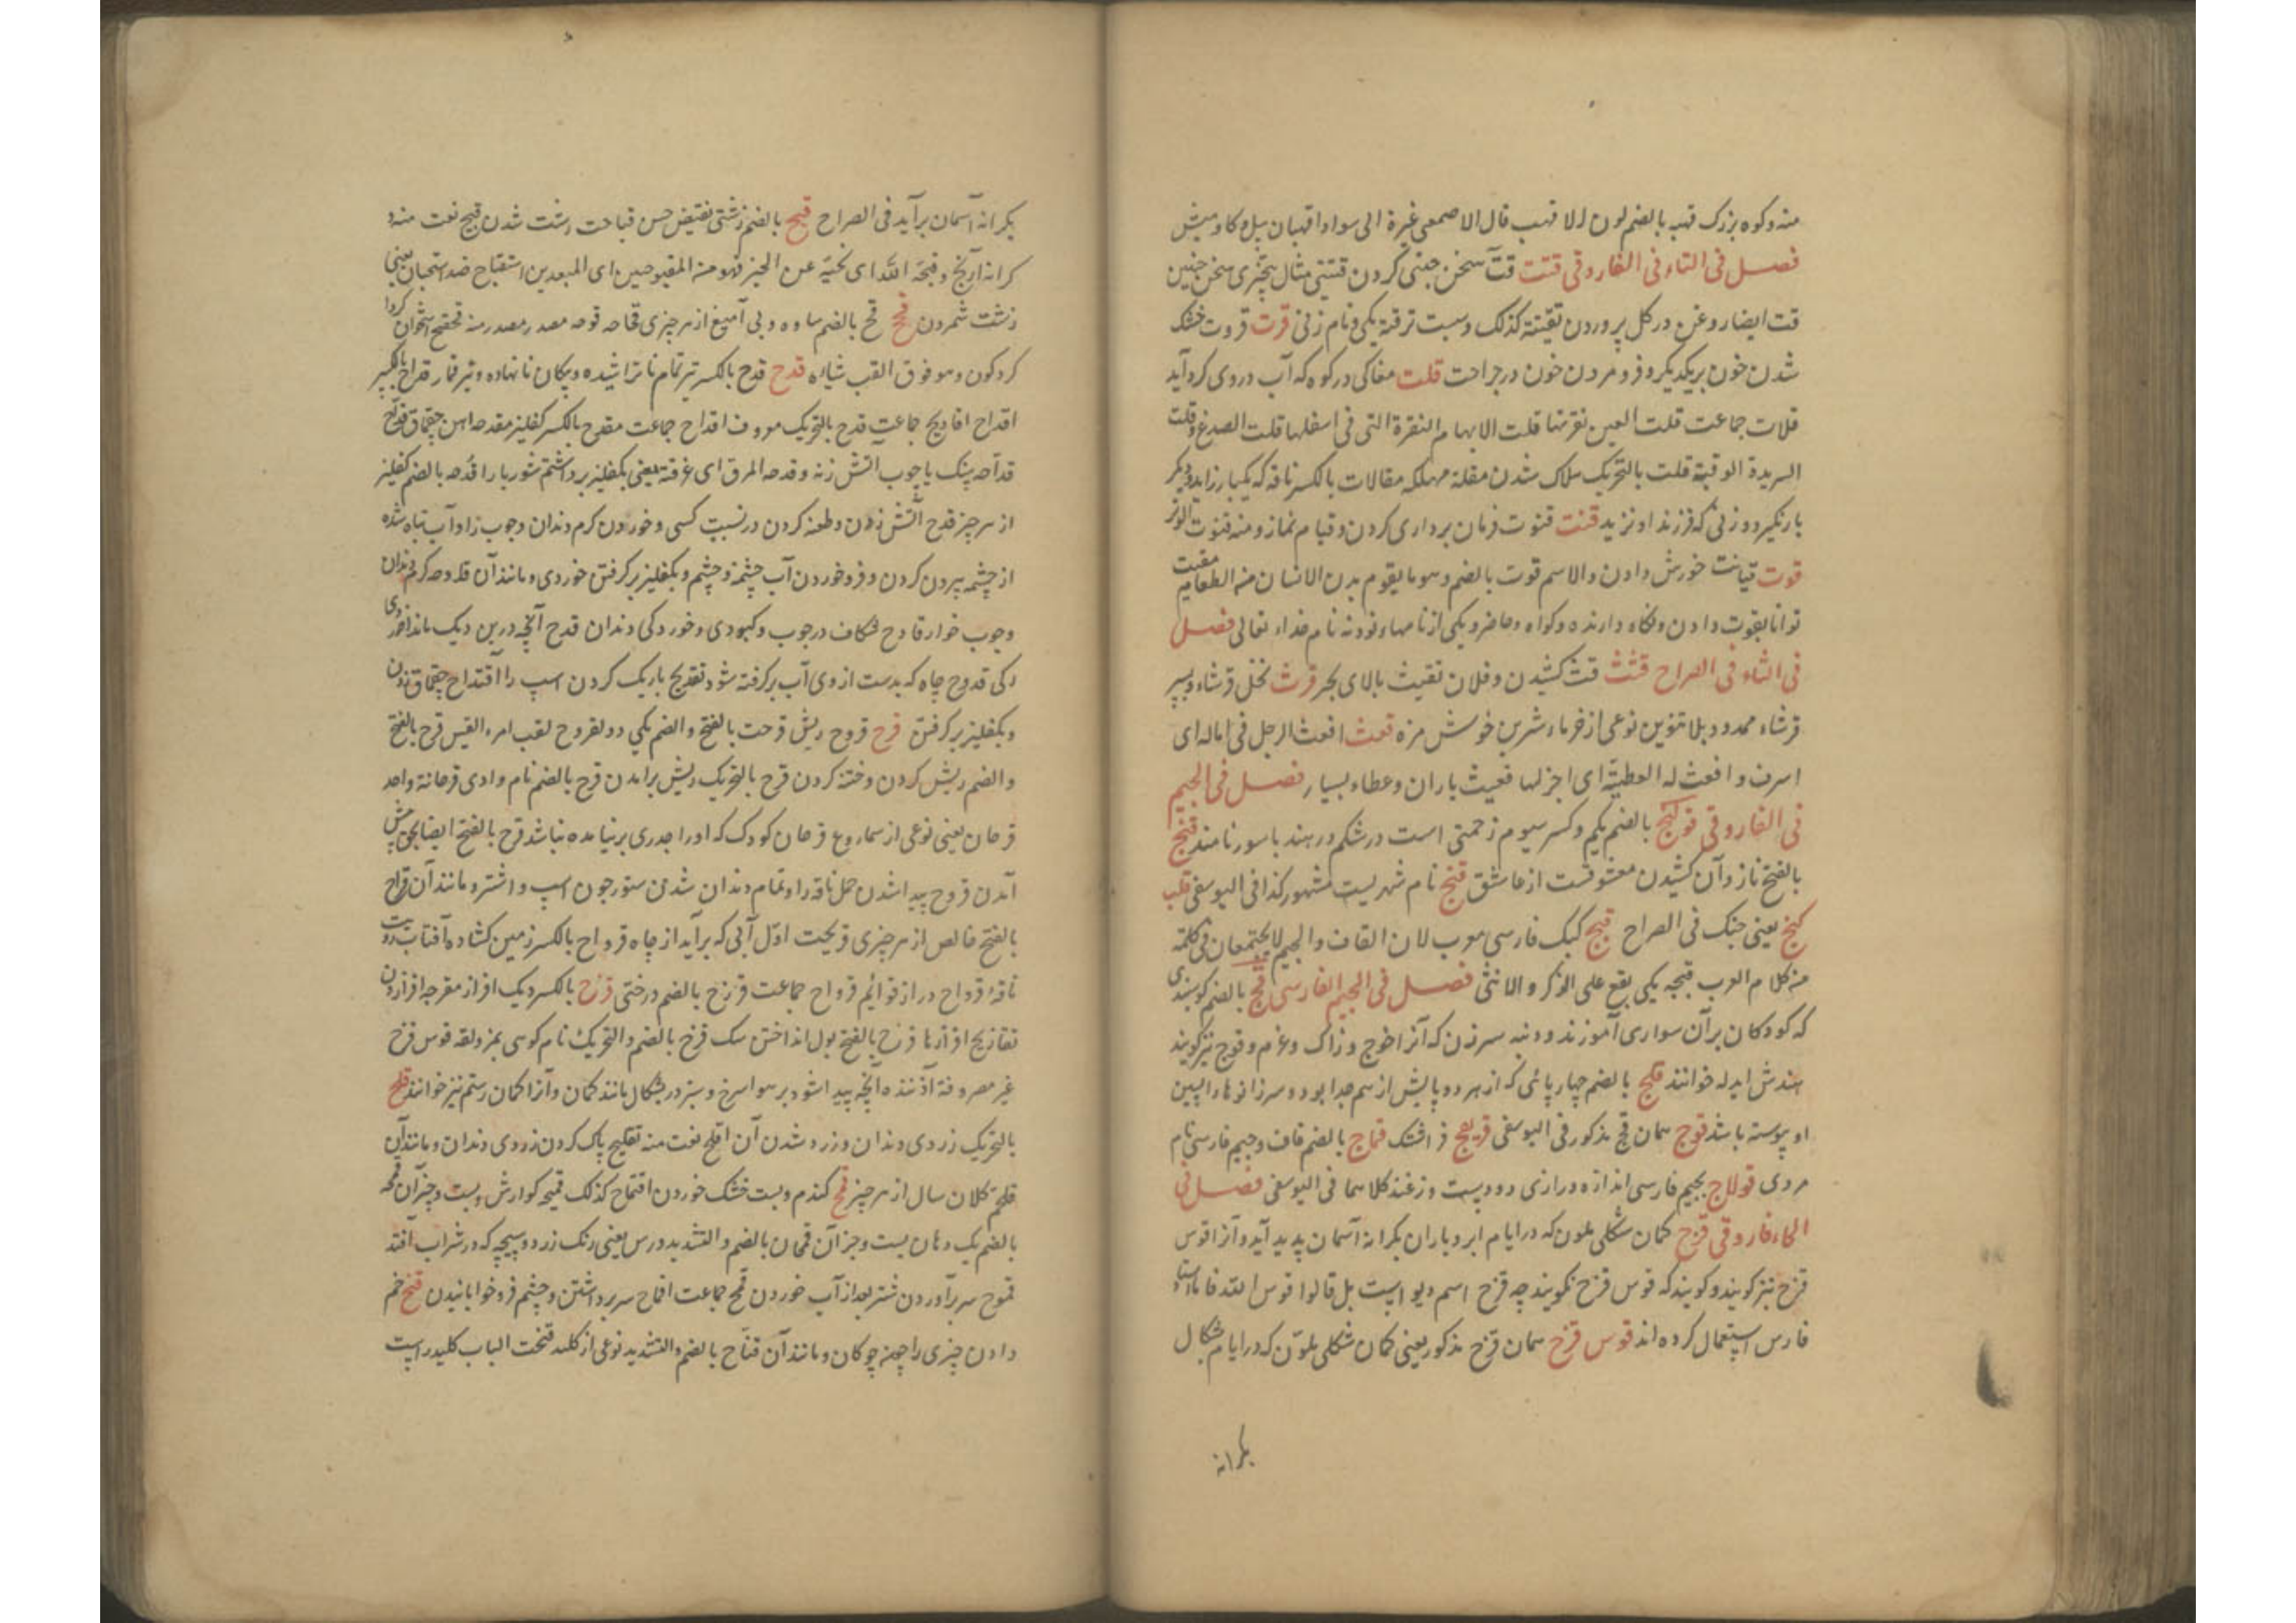 منه وکوه بزرک قهب بالضم لون الاقهب قال الاصمعی غبرة الی سواد اقهبان پیل وکاومیش
فصل فی التاء فی الفاروقی قتت قتّ سخن چینی کردن قتیتی مثال هجّیری سخن چنین
قت ایضا روغن در کل پروردن تقتیة کذلک وسبت ترقتة یکی ونام زنی قرت قروت خشک
شدن خون بر یکدیکر وفرو مردن خون در جراحت قلت مغاکی در کوه که آب در وی کرد آید
قلات جماعت قلت العین نقرتها قلت الابهام النقرة التی فی اسفلها قلت الصدغ وقلت
الثریدة الوقبة قلت بالتحریک هلاک شدن مقلة مهلکه مقلات بالکسر ناقه که یکبار زاید ودیکر
بار نکیرد وزنی که فرزند او نزید قنت قنوت فرمان برداری کردن وقیام نماز ومنه قنوت الوتر
قوت قیانت خورش دادن والاسم قوت بالضم وهو ما یقوم بدن الانسان من الطعام مقیت
توانا بقوت دادن ونکاه دارنده وکواه وحاضر ویکی از نامهاء نود ونه نام خداء تعالی فصل
فی الثاء فی الصراح قثث قث کشیدن وفلان تقیث بالای بحر قرث نخل قرثاء وبسر
قرثاء ممدود بلا تنوین نوعی از خرماء شرین خوش مزه قعث اقعث الرجل فی ماله ای
اسرف واقعث له العطیة ای اجزلها قعیث باران وعطاء بسیار فصل فی الجیم
فی الفاروقی قولنج بالضم یکم وکسر سیوم زحمتی است در شکم در هند باسور نامند قنج
بالفتح ناز وآن کشیدن معشوقست از عاشق قنج نام شهریست مشهور کذا فی الیوسفی قلب
کنج یعنی جنک فی الصراح قبج کبک فارسی معرب لان القاف والجیم لا یجتمعان فی کلمة
من کلام العرب قبجه یکی یقع علی الذکر والانثی فصل فی الجیم الفارسی قچ بالضم کوسپندی
که کودکان بر آن سواری آموزند ودنبه سرزن که آنرا خوچ وزاک وغرم وقوچ نیز کویند
هندش ایدله خوانند قلچ بالضم چهارپائی که از هر دو پایش از هم جدا بود وسر زانوهاء پسین
او پیوسته باشد قوچ همان قچ مذکور فی الیوسفی قریچ فراشتک قماچ بالضم قاف وجیم فارسی نام
مردی قولاچ بجیم فارسی اندازه درازی دو دست وزغند کلاهما فی الیوسفی فصل فی
الحاء فاروقی قزح کمان شکلی ملون که در ایام ابر وباران بکرانه آسمان پدید آید وآنرا قوس
قزح نیز کویند وکویند که قوس قزح نکویند چه قزح اسم دیو است بل قالوا قوس الله فاما استاد
فارس استعمال کرده اند قوس قزح همان قزح مذکور یعنی کمان شکلی ملوّن که در ایام شکال
بکرانه
بکرانه آسمان برآید فی الصراح قبح بالضم زشتی نقیض حسن قباحت زشت شدن قبیح نعت منه و
کرانه آرنج وقبحه اللّه ای نحّیه عن الخیر فهو من المقبوحین ای المبعدین استقباح ضد استحسان یعنی
زشت شمردن قح قح بالضم ساده وبی آمیغ از هر چیزی قحاحه قوحه مصدر مصدر منه قحقح استخوان کردا
کرد کون وهو فوق القب شیئاه قدح قدح بالکسر تیر تمام نا تراشیده وپیکان نانهاده وتیر قمار قداح بالکسر
اقداح اقادیح جماعت قدح بالتحریک معروف اقداح جماعت مقدح بالکسر کفلیز مقدحه اهن چقماق قداح
قداحه سنک یا چوب آتش زنه وقدحه المرق ای غرفته یعنی بکفلیز برداشتم شوربا را قدحه بالضم کفلیز
از هر چیز قدح آتش زدن وطعنه کردن در نسبت کسی وخوردن کرم دندان وچوب را وآب تباه شده
از چشمه بیرون کردن وفرو خوردن آب چشمه وچشم وبکفلیز بر کرفتن خوردی ومانند آن قادحه کرم دندان
وچوب خوار قادح شکاف در چوب وکبودی وخوردکی دندان قدح آنچه در بن دیک ماند از خوردی
رکی قدوح چاه که بدست از وی آب بر کرفته شود تقدیح باریک کردن اسپ را اقتداح چقماق زدن
وبکفلیز بر کرفتن قرح قروح ریش قرحت بالفتح والضم یکی ذو القروح لقب امرء القیس قرح بالفتح
والضم ریش کردن وخته کردن قرح بالتحریک ریش برامدن قرح بالضم نام وادی قرحانة واحد
قرحان یعنی نوعی از سماروغ قرحان کودک که او را جدری بر نیامده نباشد قرح بالفتح ایضا بحق پیش
آمدن قروح پیدا شدن حمل ناقه را وتمام دندان شدن ستور چون اسپ واشتر ومانند آن قراح
بالفتح خالص از هر چیزی قریحت اوّل آبی که برآید از چاه قرواح بالکسر زمین کشاده آفتاب روست
ناقة قرواح دراز قوائم قرواح جماعت قرزح بالضم درختی قزح بالکسر دیک افزار مقزحه افزاردن
تقازیح افزارها قزح بالفتح بول انداختن سک قزح بالضم والتحریک نام کوهی بمزدلفه قوس قزح
غیر مصروفة آژفنده آنچه پیدا شود بر هوا سرخ وسبز در شکل مانند کمان وآنرا کمان رستم نیز خوانند قلح
بالتحریک زردی دندان وزرد شدن آن اقلح نعت منه تقلیح پاک کردن زردی دندان ومانند آن
قلحم کلان سال از هر چیز قمح کندم وپست خشک خوردن اقتماح کذلک قمیحه کوارش وپست وجز آن قمحه
بالضم یک دهان پست وجز آن قمحان بالضم والتشدید ورس یعنی رنک زرد وسپیچه که در شراب افتد
قموح سر برآوردن شتر بعد از آب خوردن قمح جماعت اقماح سر برداشتن وچشم فرو خوابانیدن قنح خم
دادن چیزی را چون چوکان ومانند آن قناح بالضم والتشدید نوعی از کلید قنحت الباب کلید راست